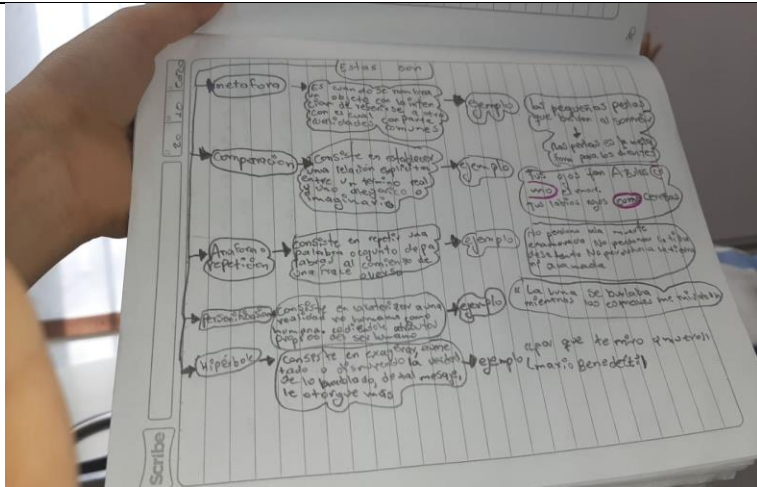 Estas son
metafora
Es cuando se nombra
un objeto con la inten
cion de referirse a otro
con el cual comparte
cualidades comunes
ejemplo
las pequeñas perlas
que brillan al sonreir
las perlas es la meta
fora para los dientes
Comparación
Consiste en establecer
una relación explicita
entre un termino real
y uno alegorico o
imaginario
ejemplo
Tus ojos tan Azules co
mo el mar.
tus labios rojos como cerezas
Anafora o
repetición
consiste en repetir una
palabra o conjunto de pa
labras al comienzo de
una frase o verso
ejemplo
No perdono a la muerte
enamorada No perdono a la vida
desatenta No perdono a la tierra
ni a la nada
personificación
Consiste en
realidad no humana como
humana
propios del ser humano
ejemplo
"La luna se burlaba
mientras las estrellas me miraban
Hipérbole
Consiste en exagerar, aumen
tado o disminuyendo la verdad
de lo hablado, de tal
le otorgue más
ejemplo
que te miro y muero"
(mario Benedetti)
Scribe